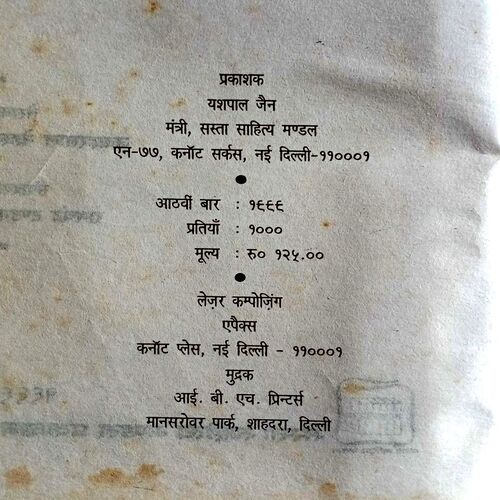 प्रकाशक
यशपाल जैन
मंत्री, सस्ता साहित्य मण्डल
एन-७७, कनॉट सर्कस, नई दिल्ली-११०००१
●
आठवीं बार : १९९९
प्रतियाँ : १०००
मूल्य : रु० १२५.००
●
लेज़र कम्पोज़िंग
एपैक्स
कनॉट प्लेस, नई दिल्ली - ११०००१
मुद्रक
आई. बी. एच. प्रिन्टर्स
मानसरोवर पार्क, शाहदरा, दिल्ली